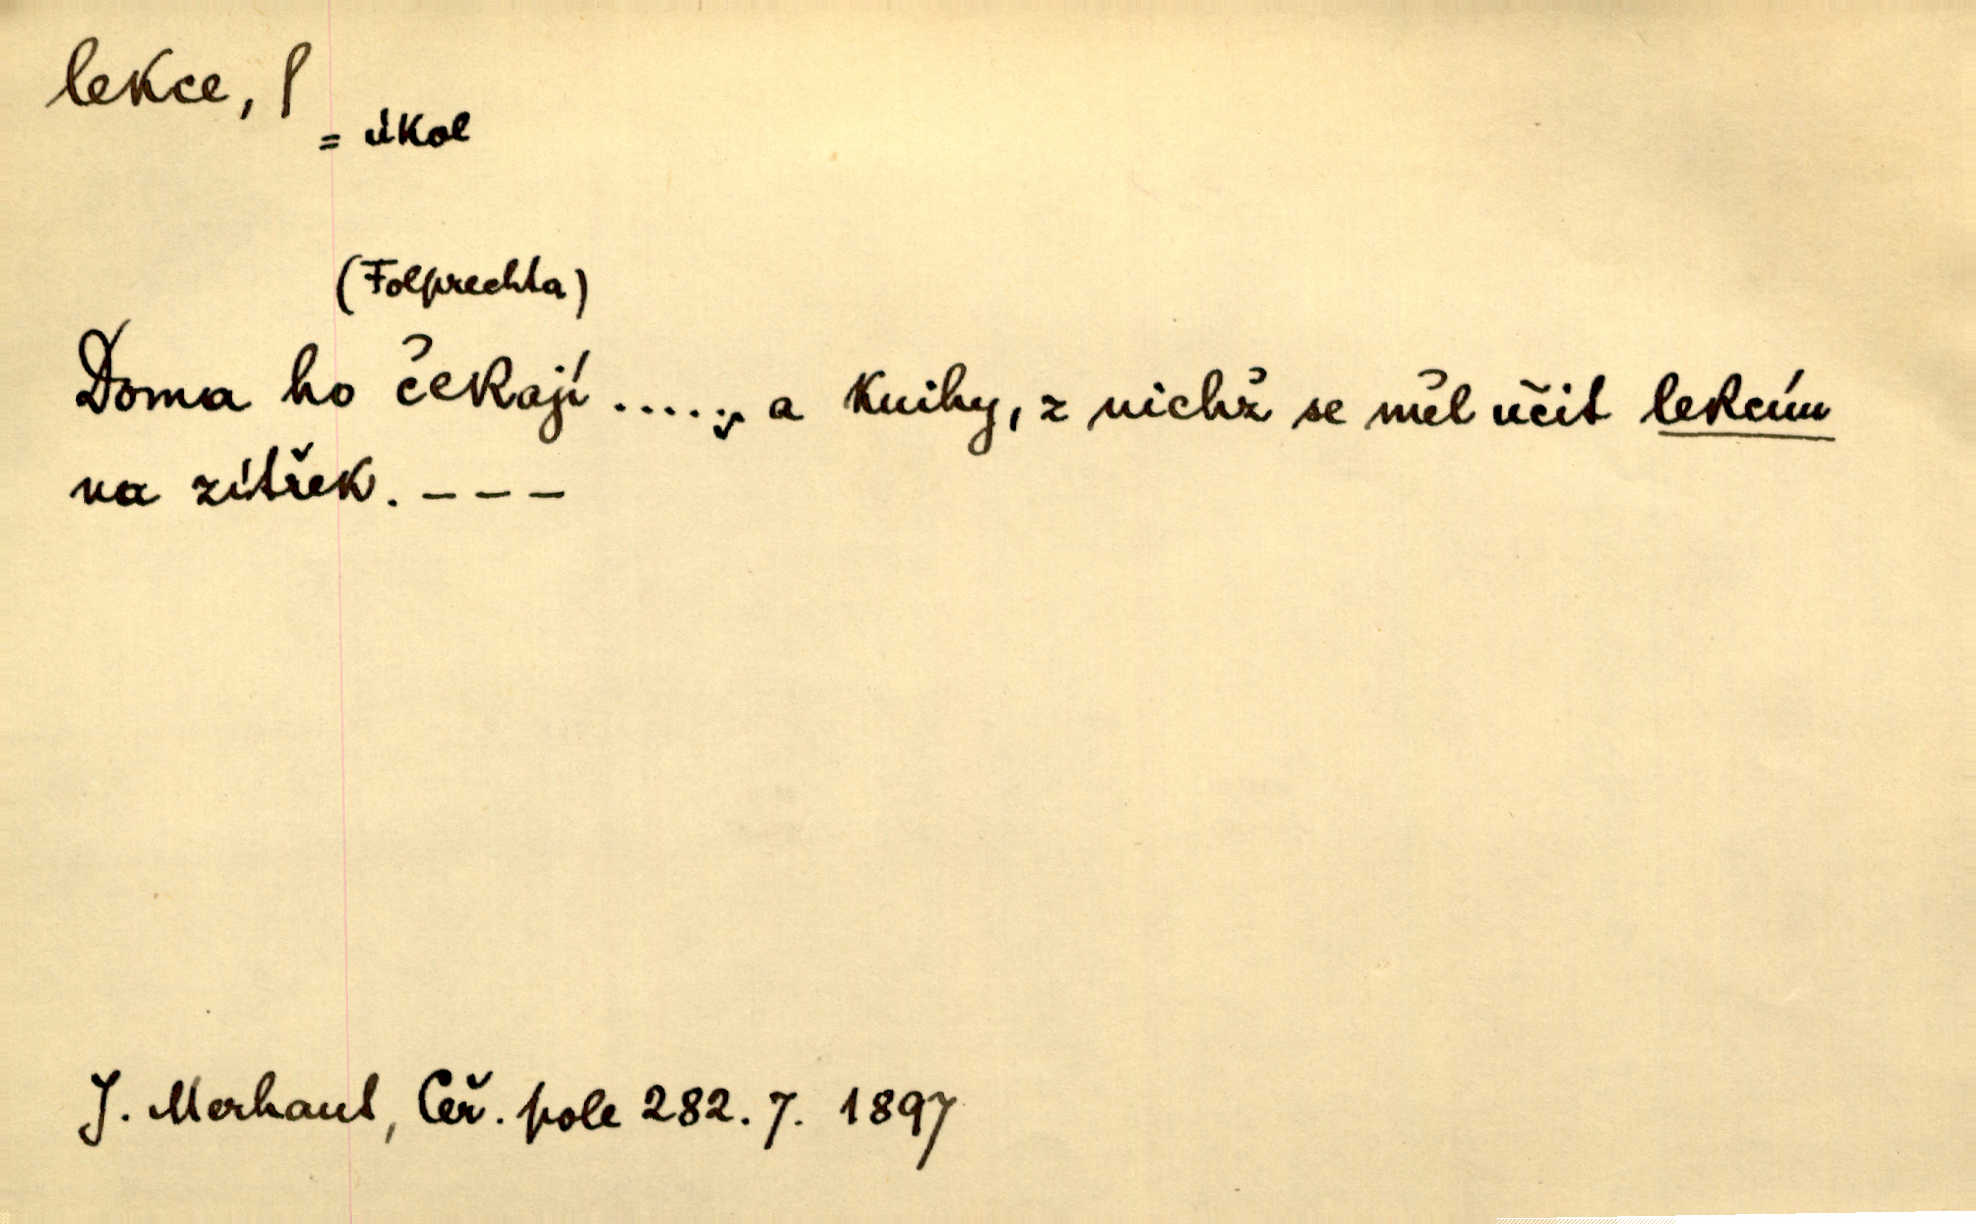 lekce, f
= úkol
(Folprechta)
Doma ho čekají ....., a knihy, z nichž se měl učit lekcím
na zítřek. – – –
J. Merhaut, Čeř. pole 282. 7. 1897